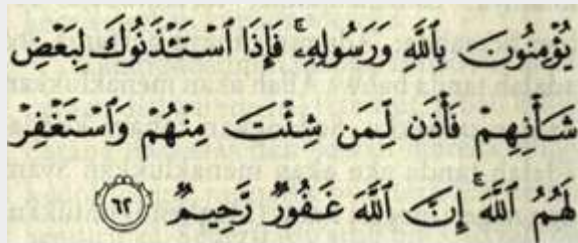 يُؤْمِنُونَ بِٱللَّهِ وَرَسُولِهِۦۚ فَإِذَا ٱسْتَـْٔذَنُوكَ لِبَعْضِ
شَأْنِهِمْ فَأْذَن لِّمَن شِئْتَ مِنْهُمْ وَٱسْتَغْفِرْ
لَهُمُ ٱللَّهَۚ إِنَّ ٱللَّهَ غَفُورٌ رَّحِيمٌ ۝٦٢